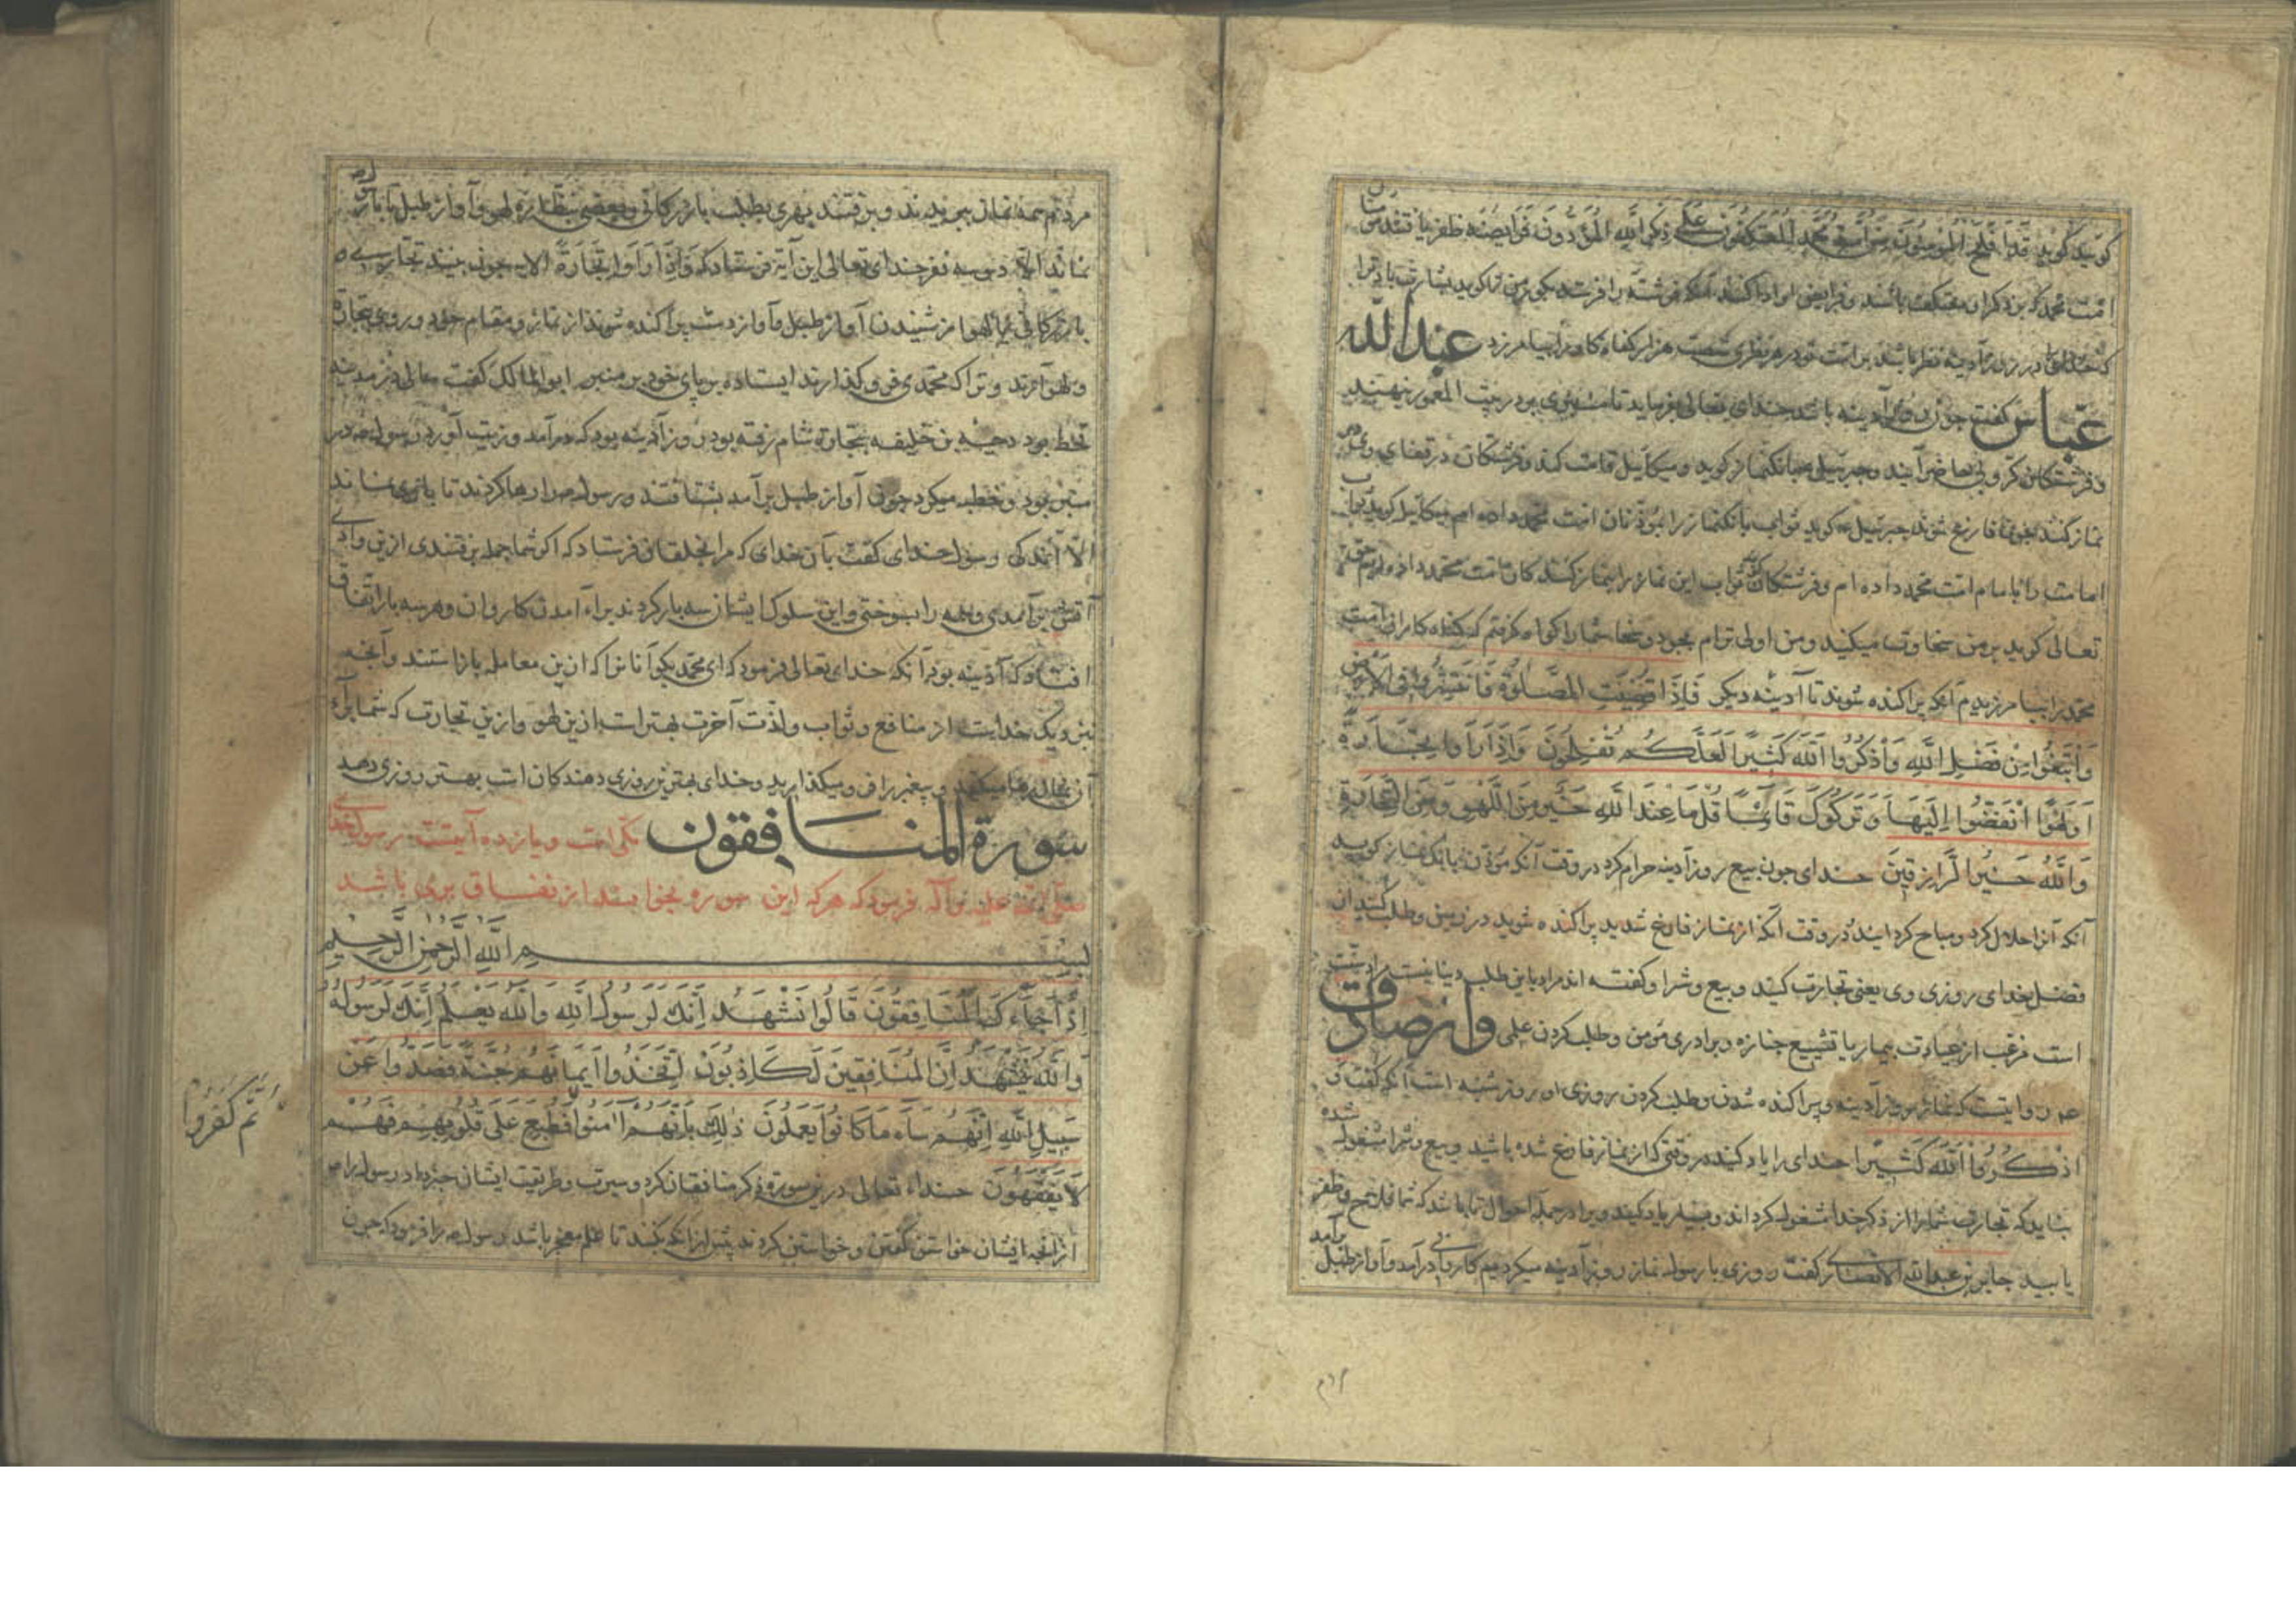 کویید کویید قد افلح المؤمنون من امة محمد المعتکفون علی ذکر الله المؤدون فرایضه ظفر یافتند
امت محمد که بر ذکر او معتکف باشند و فرایض او ادا کنند آنکه فرشته را فرستد
که خدایرا در روز آدینه نظر باشد بر امت تو در هر نظری شصت هزار کناه کار را بیامرزد عبد الله
عباس کفت چون روز آدینه باشد خدای تعالی بفرماید تا منبری در بیت المعمور بنهند
و فرشتکان کروبی حاضر آیند و جبرئیل بانکنماز کوید و میکائیل قامت کند و فرشتکان در قفای وی
نماز کنند چون فارغ شوند جبرئیل کوید ثواب بانکنماز را بمؤذنان امت محمد داده ام میکائیل کوید ثواب
امامت را بامام امت محمد داده ام و فرشتکان ثواب این نماز را بنماز کنندکان امت محمد داده
تعالی کوید بر من سخاوت میکنید و من اولی ترام بجود و سخا شما را کواه کرفتم که کناه کاران امت
محمد را بیامرزیدم آنکه پراکنده شوند تا آدینه دیکر فَاِذَا قُضِیَتِ الصَّلٰوةُ فَانْتَشِرُوا فِی الْاَرْضِ
وَابْتَغُوا مِنْ فَضْلِ اللّٰهِ وَاذْکُرُوا اللّٰهَ کَثِیرًا لَعَلَّکُمْ تُفْلِحُونَ وَاِذَا رَاَوْا تِجَارَةً
اَوْ لَهْوًا انْفَضُّوا اِلَیْهَا وَتَرَکُوکَ قَائِمًا قُلْ مَا عِنْدَ اللّٰهِ خَیْرٌ مِنَ اللَّهْوِ وَمِنَ التِّجَارَةِ
وَاللّٰهُ خَیْرُ الرَّازِقِینَ خدای چون بیع روز آدینه حرام کرد در وقت آنکه مؤذن بانکنماز کوید
آنکه آنرا حلال کرد و مباح کردانید در وقت آنکه از نماز فارغ شدید پراکنده شوید در زمین و طلب کنید از
فضل خدای روزی وی یعنی تجارت کنید و بیع و شرا و کفته اند مراد باین طلب دنیا نیست
است مرغب از عیادت بیمار یا تشییع جنازه و برادری مؤمن و طلب کردن علمی و از صادق
روایتست که نماز روز آدینه و پراکنده شدن و طلب کردن روزی او روز شنبه است آنکه کفت
اذْکُرُوا اللّٰهَ کَثِیرًا خدای را یاد کنید در وقتی که از نماز فارغ شده باشید و بیع و شرا مشغول شده
شاید که تجارت شما را از ذکر خدا مشغول کرداند و بسیار یاد کنید ویرا در جمله احوال تا باشد که شما فلاح و ظفر
یابید جابر بن عبد الله الانصاری کفت روزی با رسول نماز روز آدینه میکردیم کاروانی درآمد و آواز طبل برآمد
مردم همه بجهیدند و برفتند بهری بطلب بازرکانی و بعضی بنظاره لهو و آواز طبل تا با رسول
نماند الا دوسه نفر خدای تعالی این آیة فرستاد که وَاِذَا رَاَوْا تِجَارَةً الایه چون بینند تجارتی
بازرکانی یا لهو از شنیدن آواز طبل و آواز دف پراکنده شوند از نماز و مقام خود و روی بتجارة
و لهو آرند و ترا که محمدی فرو کذارند ایستاده بر پای خود بر منبر ابو المالک کفت سالی در مدینه
قحط بود دحیه بن خلیفه بتجارة شام رفته بود روز آدینه بود که درآمد و زیت آورد رسول در
منبر بود و خطبه میکرد چون آواز طبل برآمد بشتافتند و رسول را رها کردند تا با وی نماند
الا اندکی رسول خدای کفت بآن خدای که مرا بخلقان فرستاد که اکر شما جمله برفتندی ازین وادی
آتش برآمدی و همه را بسوختی و این سلوک ایشان سه بار کردند براء آمدن کاروان و هر سه بار اتفاق
افتاد که آدینه بود آنکه خدای تعالی فرمود که ای محمد بکو آنانرا که ازین معامله باز ایستند و آنچه
بنزدیک خدایست از منافع و ثواب و لذت آخرت بهتر است ازین لهو و ازین تجارت که شما براء
آن نماز رها میکنید و پیغمبر را فرو میکذارید و خدای بهترین روزی دهندکان است بهتر روزی دهد
سورة المنافقون مکی است و یازده آیتست رسول خدای
صلی الله علیه و آله فرمود که هر که این سوره بخواند از نفاق بری باشد
بسم الله الرحمن الرحیم
اِذَا جَاءَکَ الْمُنَافِقُونَ قَالُوا نَشْهَدُ اِنَّکَ لَرَسُولُ اللّٰهِ وَاللّٰهُ یَعْلَمُ اِنَّکَ لَرَسُولُهُ
وَاللّٰهُ یَشْهَدُ اِنَّ الْمُنَافِقِینَ لَکَاذِبُونَ اتَّخَذُوا اَیْمَانَهُمْ جُنَّةً فَصَدُّوا عَنْ
سَبِیلِ اللّٰهِ اِنَّهُمْ سَاءَ مَا کَانُوا یَعْمَلُونَ ذٰلِکَ بِاَنَّهُمْ اٰمَنُوا فَطُبِعَ عَلٰی قُلُوبِهِمْ فَهُمْ
ثُمَّ کَفَرُوا
لَا یَفْقَهُونَ خداء تعالی درین سوره ذکر منافقان کرد و سیرت و طریقت ایشان خبر داد رسول را
از آنچه ایشان خواستن کفتن و خواستن کردند پیش از آنکه بکنند تا علم معجز باشد رسول را فرمود که چون